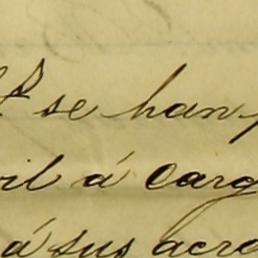 se han
á carg
á sus acre